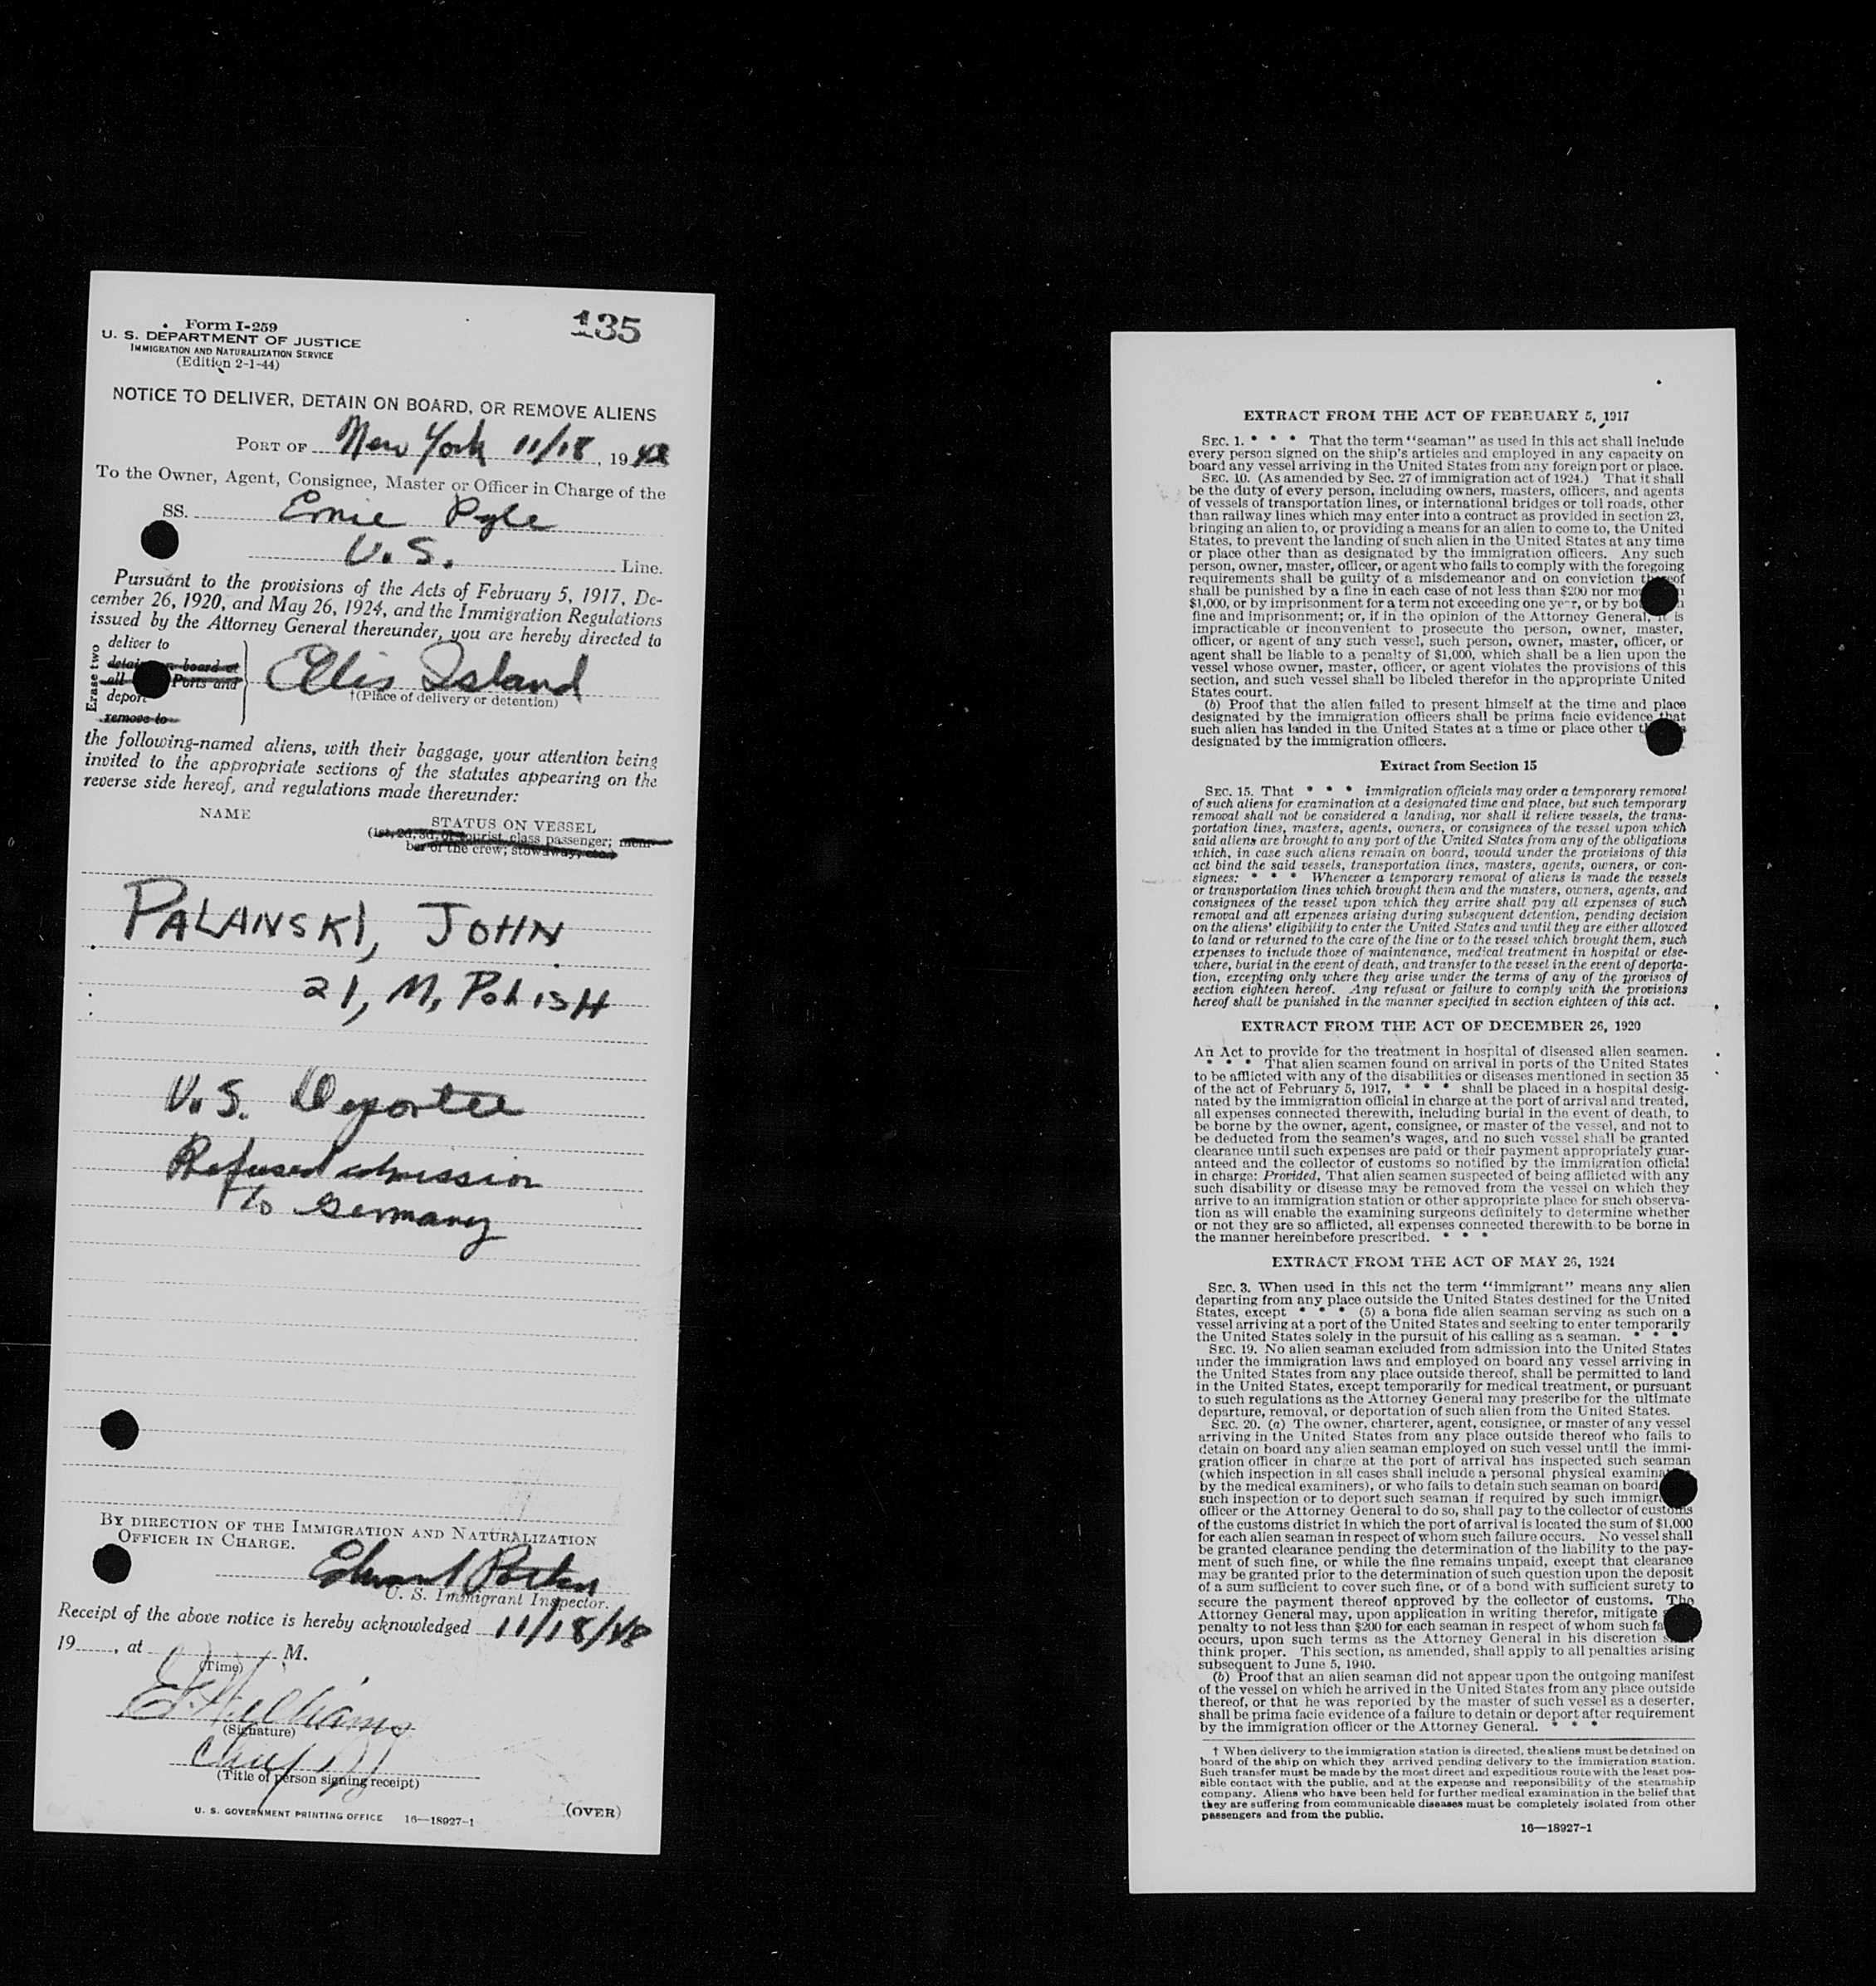 Form I-259
U. S. DEPARTMENT OF JUSTICE
IMMIGRATION AND NATURALIZATION SERVICE
(Edition 2-1-44)
135
NOTICE TO DELIVER, DETAIN ON BOARD, OR REMOVE ALIENS
PORT OF New York 11/18, 1948
To the Owner, Agent, Consignee, Master or Officer in Charge of the
SS. Ernie Pyle
U.S. Line.
Pursuant to the provisions of the Acts of February 5, 1917, De-
cember 26, 1920, and May 26, 1924, and the Immigration Regulations
issued by the Attorney General thereunder, you are hereby directed to
Erase two
deliver to
on board at
all Ports and
deport
remove to
Ellis Island
†(Place of delivery or detention)
the following-named aliens, with their baggage, your attention being
invited to the appropriate sections of the statutes appearing on the
reverse side hereof, and regulations made thereunder:
NAME
STATUS ON VESSEL
(1st, 2d, 3d, or tourist class passenger; mem-
ber of the crew; stowaway, etc.)
PALANSKI, JOHN
21, M, POLISH
U.S. Deportee
Refused admission
to Germany
BY DIRECTION OF THE IMMIGRATION AND NATURALIZATION
OFFICER IN CHARGE.
Edward
U. S. Immigrant Inspector.
Receipt of the above notice is hereby acknowledged 11/18/48
19____, at ____ M.
(Time)
Williams
(Signature)
Chief
(Title of person signing receipt)
U. S. GOVERNMENT PRINTING OFFICE 16—18927-1
(OVER)
EXTRACT FROM THE ACT OF FEBRUARY 5, 1917
SEC. 1. * * * That the term "seaman" as used in this act shall include
every person signed on the ship's articles and employed in any capacity on
board any vessel arriving in the United States from any foreign port or place.
SEC. 10. (As amended by Sec. 27 of immigration act of 1924.) That it shall
be the duty of every person, including owners, masters, officers, and agents
of vessels of transportation lines, or international bridges or toll roads, other
than railway lines which may enter into a contract as provided in section 23,
bringing an alien to, or providing a means for an alien to come to, the United
States, to prevent the landing of such alien in the United States at any time
or place other than as designated by the immigration officers. Any such
person, owner, master, officer, or agent who fails to comply with the foregoing
requirements shall be guilty of a misdemeanor and on conviction thereof
shall be punished by a fine in each case of not less than $200 nor
$1,000, or by imprisonment for a term not exceeding one year, or by
fine and imprisonment; or, if in the opinion of the Attorney General, it is
impracticable or inconvenient to prosecute the person, owner, master,
officer, or agent of any such vessel, such person, owner, master, officer, or
agent shall be liable to a penalty of $1,000, which shall be a lien upon the
vessel whose owner, master, officer, or agent violates the provisions of this
section, and such vessel shall be libeled therefor in the appropriate United
States court.
(b) Proof that the alien failed to present himself at the time and place
designated by the immigration officers shall be prima facie evidence that
such alien has landed in the United States at a time or place other
designated by the immigration officers.
Extract from Section 15
SEC. 15. That * * * immigration officials may order a temporary removal
of such aliens for examination at a designated time and place, but such temporary
removal shall not be considered a landing, nor shall it relieve vessels, the trans-
portation lines, masters, agents, owners, or consignees of the vessel upon which
said aliens are brought to any port of the United States from any of the obligations
which, in case such aliens remain on board, would under the provisions of this
act bind the said vessels, transportation lines, masters, agents, owners, or con-
signees: * * * Whenever a temporary removal of aliens is made the vessels
or transportation lines which brought them and the masters, owners, agents, and
consignees of the vessel upon which they arrive shall pay all expenses of such
removal and all expenses arising during subsequent detention, pending decision
on the aliens' eligibility to enter the United States and until they are either allowed
to land or returned to the care of the line or to the vessel which brought them, such
expenses to include those of maintenance, medical treatment in hospital or else-
where, burial in the event of death, and transfer to the vessel in the event of deporta-
tion, excepting only where they arise under the terms of any of the provisos of
section eighteen hereof. Any refusal or failure to comply with the provisions
hereof shall be punished in the manner specified in section eighteen of this act.
EXTRACT FROM THE ACT OF DECEMBER 26, 1920
An Act to provide for the treatment in hospital of diseased alien seamen.
* * * That alien seamen found on arrival in ports of the United States
to be afflicted with any of the disabilities or diseases mentioned in section 35
of the act of February 5, 1917, * * * shall be placed in a hospital desig-
nated by the immigration official in charge at the port of arrival and treated,
all expenses connected therewith, including burial in the event of death, to
be borne by the owner, agent, consignee, or master of the vessel, and not to
be deducted from the seamen's wages, and no such vessel shall be granted
clearance until such expenses are paid or their payment appropriately guar-
anteed and the collector of customs so notified by the immigration official
in charge: Provided, That alien seamen suspected of being afflicted with any
such disability or disease may be removed from the vessel on which they
arrive to an immigration station or other appropriate place for such observa-
tion as will enable the examining surgeons definitely to determine whether
or not they are so afflicted, all expenses connected therewith to be borne in
the manner hereinbefore prescribed. * * *
EXTRACT FROM THE ACT OF MAY 26, 1924
SEC. 3. When used in this act the term "immigrant" means any alien
departing from any place outside the United States destined for the United
States, except * * * (5) a bona fide alien seaman serving as such on a
vessel arriving at a port of the United States and seeking to enter temporarily
the United States solely in the pursuit of his calling as a seaman. * * *
SEC. 19. No alien seaman excluded from admission into the United States
under the immigration laws and employed on board any vessel arriving in
the United States from any place outside thereof, shall be permitted to land
in the United States, except temporarily for medical treatment, or pursuant
to such regulations as the Attorney General may prescribe for the ultimate
departure, removal, or deportation of such alien from the United States.
SEC. 20. (a) The owner, charterer, agent, consignee, or master of any vessel
arriving in the United States from any place outside thereof who fails to
detain on board any alien seaman employed on such vessel until the immi-
gration officer in charge at the port of arrival has inspected such seaman
(which inspection in all cases shall include a personal physical
by the medical examiners), or who fails to detain such seaman on board
such inspection or to deport such seaman if required by such
officer or the Attorney General to do so, shall pay to the collector of customs
of the customs district in which the port of arrival is located the sum of $1,000
for each alien seaman in respect of whom such failure occurs. No vessel shall
be granted clearance pending the determination of the liability to the pay-
ment of such fine, or while the fine remains unpaid, except that clearance
may be granted prior to the determination of such question upon the deposit
of a sum sufficient to cover such fine, or of a bond with sufficient surety to
secure the payment thereof approved by the collector of customs. The
Attorney General may, upon application in writing therefor, mitigate
penalty to not less than $200 for each seaman in respect of whom such
occurs, upon such terms as the Attorney General in his discretion
think proper. This section, as amended, shall apply to all penalties arising
subsequent to June 5, 1940.
(b) Proof that an alien seaman did not appear upon the outgoing manifest
of the vessel on which he arrived in the United States from any place outside
thereof, or that he was reported by the master of such vessel as a deserter,
shall be prima facie evidence of a failure to detain or deport after requirement
by the immigration officer or the Attorney General. * * *
† When delivery to the immigration station is directed, the aliens must be detained on
board of the ship on which they arrived pending delivery to the immigration station.
Such transfer must be made by the most direct and expeditious route with the least pos-
sible contact with the public, and at the expense and responsibility of the steamship
company. Aliens who have been held for further medical examination in the belief that
they are suffering from communicable diseases must be completely isolated from other
passengers and from the public.
16—18927-1